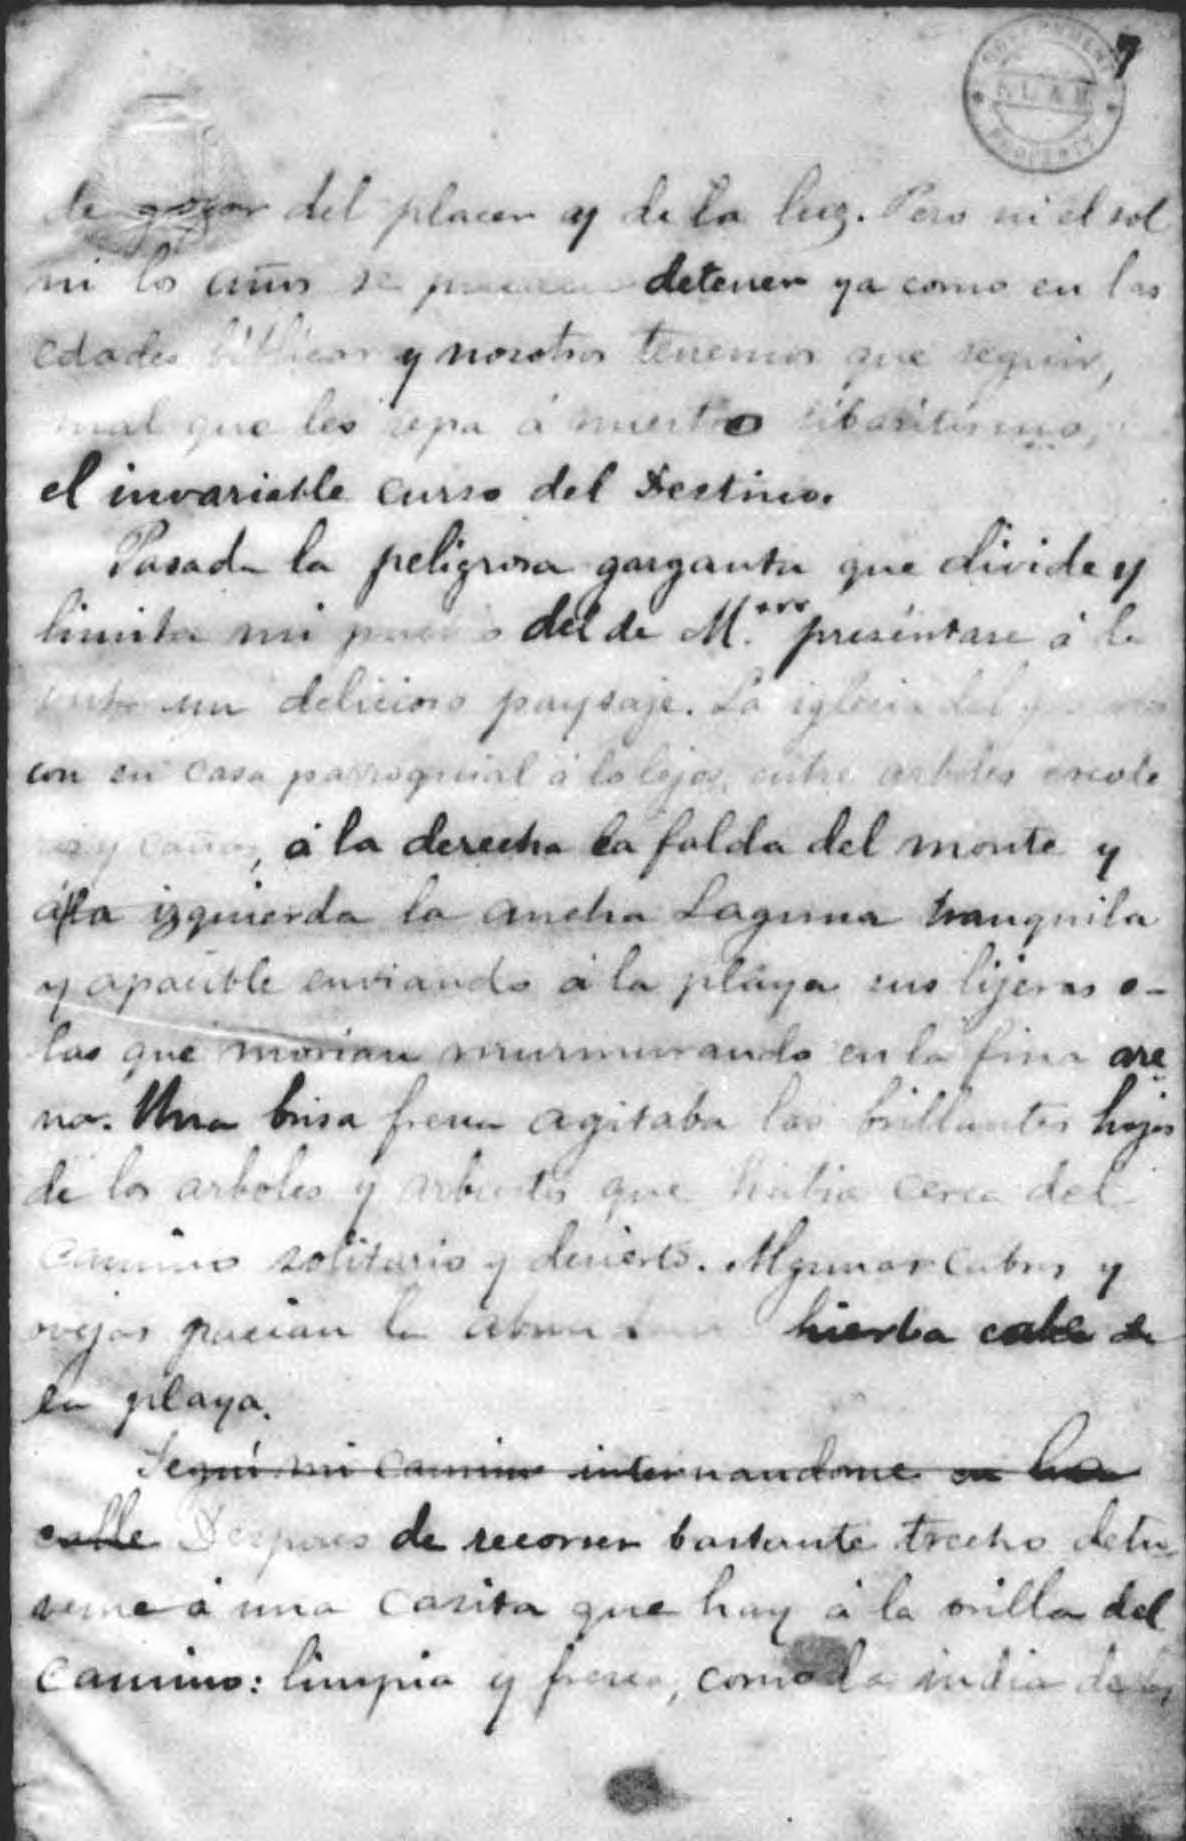 7
GOVERNMENT
PROPERTY
de gozar del placer y de la luz. Pero ni el sol
ni los años se detener ya como en las
edades biblicas y nosotros tenemos que seguir,
mal que les sepa á nuestro sibaritismo,
el invariable curso del Destino.
Pasada la peligrosa garganta que divide y
limita mi pueblo del de M.*** preséntase á la
vista un delicioso paysaje. La iglesia del
con su casa parroquial á lo lejos, entre arboles
y cañas, á la derecha la falda del monte y
á la izquierda la ancha Laguna tranquila
y apacible enviando á la playa sus lijeras o-
las que morian murmurando en la fina are
na. Una brisa fresca agitaba las brillantes hojas
de los arboles y arbustos que habia cerca del
camino solitario y desierto. Algunas cabras y
ovejas pacian la abundante hierba cabe de
la playa.
Seguí mi camino internandome en la
calle Despues de recorrer bastante trecho detu
veme á una casita que hay á la orilla del
camino: limpia y fresca, como la india de las